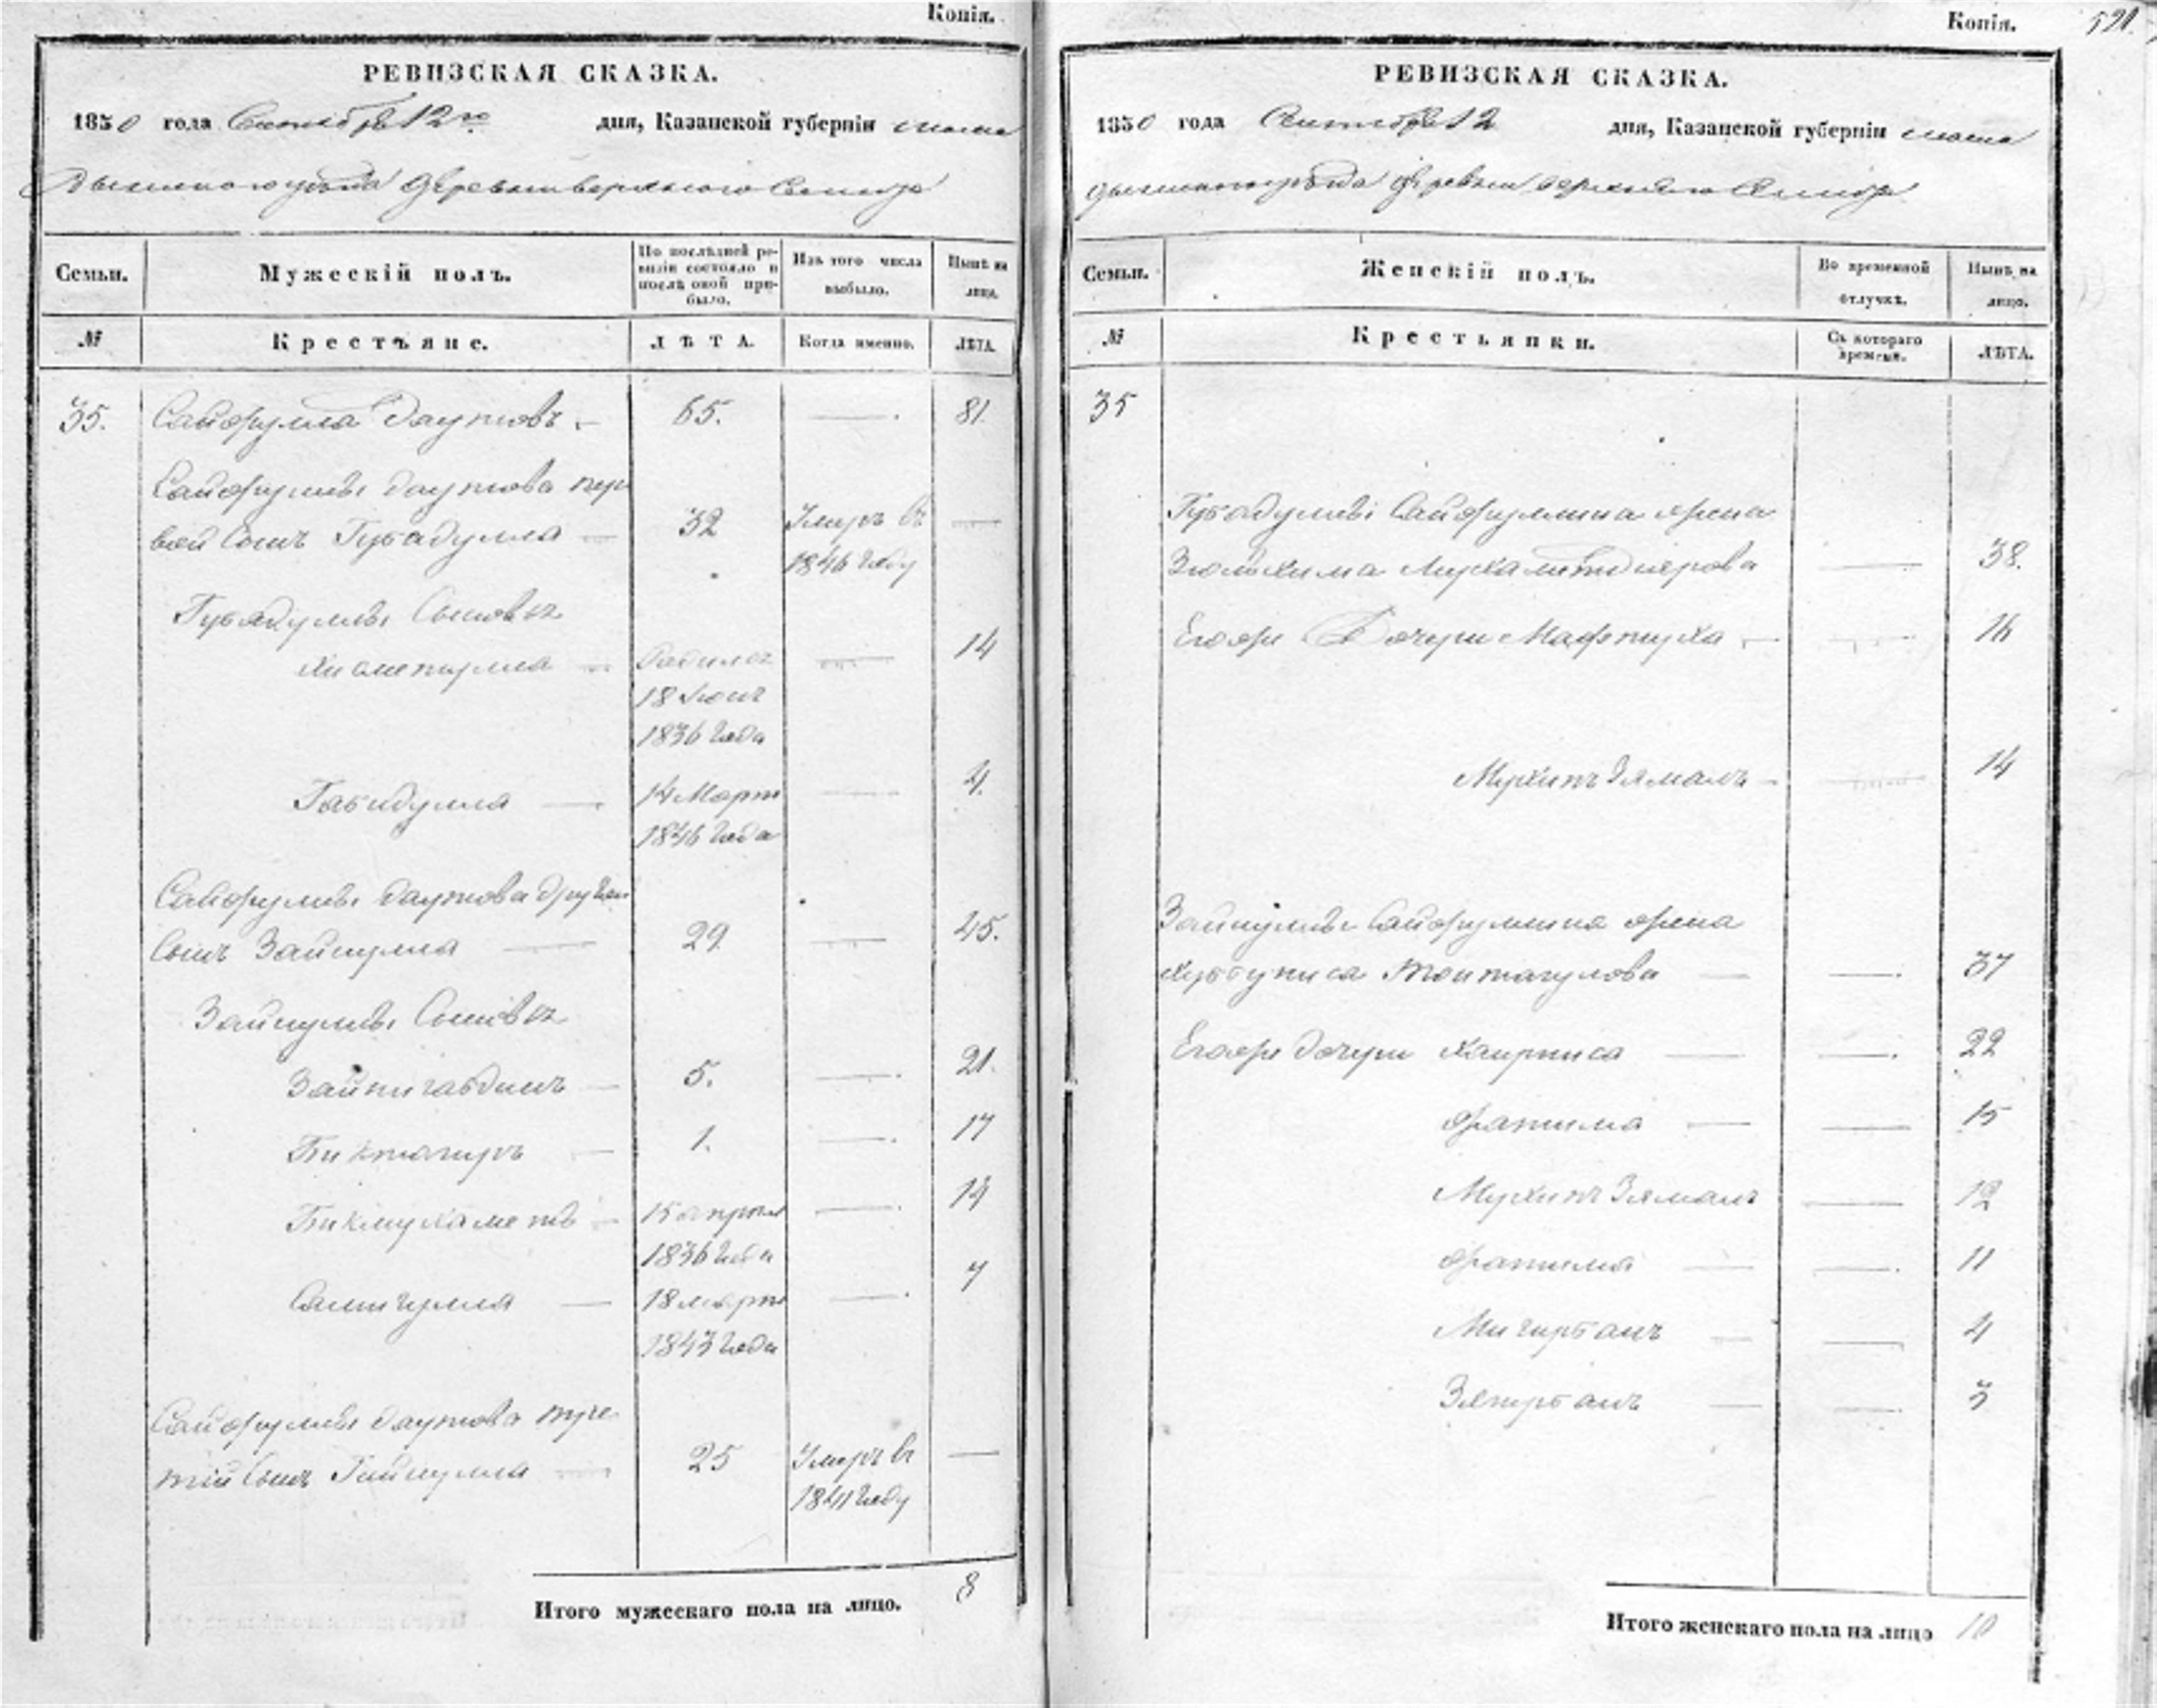 Копія.
РЕВИЗСКАЯ СКАЗКА.
1850 года Сентября 12го дня, Казанской губерніи мама
дышскаго уѣзда деревни верхняго
Семьи. Мужескій полъ. По послѣдней ре-
визіи состояло и
послѣ оной при-
было. Изъ того числа
выбыло. Нынѣ на
лицо.
№ Крестьяне. ЛѢТА. Когда именно. ЛѢТА.
35. Сайфулла Даутовъ 65. 81.
Сайфуллы Даутова пер
вой Сынъ Губадулла 32 Умеръ въ
1846 году
Губадуллы Сыновья
Хисметулла Родился 14
18 Июня
1836 года
Габидулла 14 Марта 4.
1846 года
Сайфуллы Даутова другой
Сынъ Зайнулла 29 45.
Зайнуллы Сыновья
Зайнигабдинъ 5. 21.
Биктагиръ 1. 17
Бикмухаметъ 15 апреля 14
1836 года
Самигулла 18 марта 7
1843 года
Сайфуллы Даутова тре
тій Сынъ Гайнулла 25 Умеръ въ
1841 году
Итого мужескаго пола на лицо. 8
Копія. 521.
РЕВИЗСКАЯ СКАЗКА.
1850 года Сентября 12 дня, Казанской губерніи мама
дышскаго уѣзда деревни верхняго
Семьи. Женскій полъ. Во временной
отлучкѣ. Нынѣ на
лицо.
№ Крестьянки. Съ котораго
времени. ЛѢТА.
35
Губадуллы Сайфуллина жена
Зюльхима 38.
Егожъ Дочери Мафтуха 16
Мухипъ Зямалъ 14
Зайнуллы Сайфуллина жена
Хубуниса Тойтагулова 37
Егожъ дочери Хаирниса 22
Фатима 15
Мухипъ Зямалъ 12
Фатима 11
Мигирбанъ 4
3
Итого женскаго пола на лицо 10